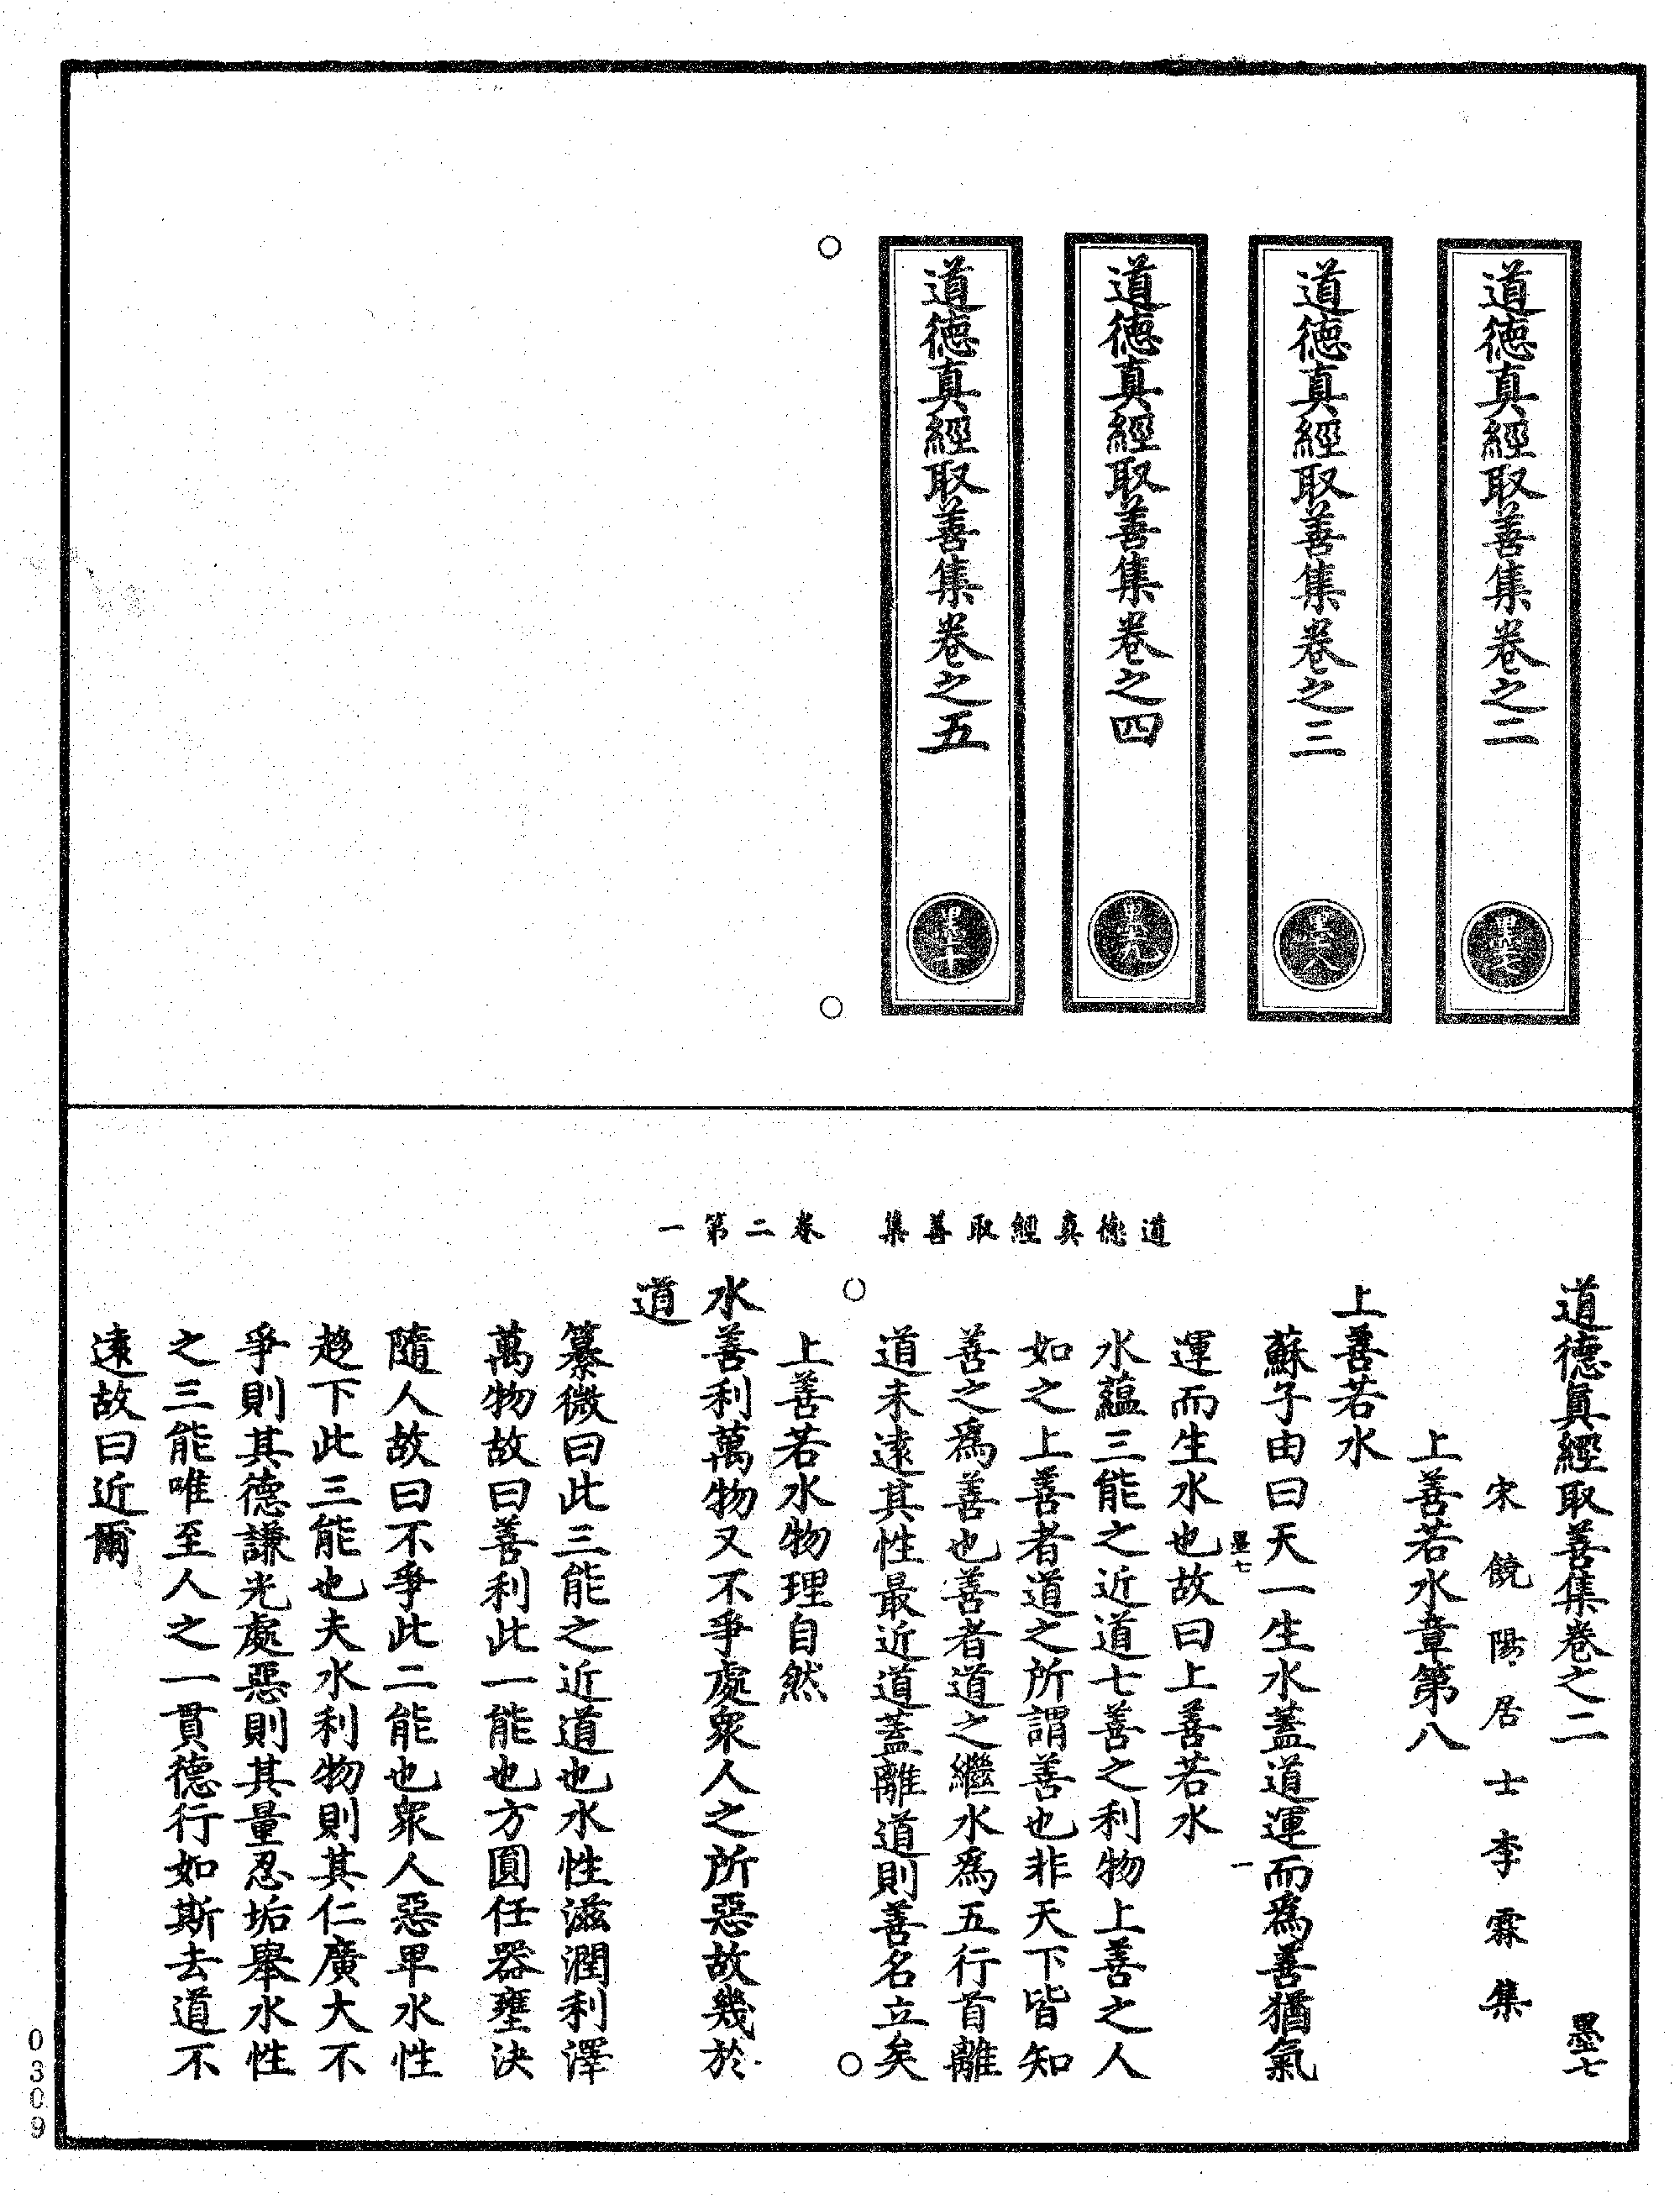 道德真經取善集卷之二
墨七
道德真經取善集卷之三
墨八
道德真經取善集卷之四
墨九
道德真經取善集卷之五
墨十
道德真經取善集　卷二第一
道德真經取善集卷之二　墨七
宋饒陽居士李霖集
上善若水章第八
上善若水
蘇子由曰天一生水蓋道運而為善猶氣
墨七　一
運而生水也故曰上善若水
水蘊三能之近道七善之利物上善之人
如之上善者道之所謂善也非天下皆知
善之為善也善者道之繼水為五行首離
道未遠其性最近道蓋離道則善名立矣
上善若水物理自然
水善利萬物又不爭處衆人之所惡故幾於
道
纂微曰此三能之近道也水性滋潤利澤
萬物故曰善利此一能也方圓任器壅決
隨人故曰不爭此二能也衆人惡卑水性
趍下此三能也夫水利物則其仁廣大不
爭則其德謙光處惡則其量忍垢舉水性
之三能唯至人之一貫德行如斯去道不
遠故曰近爾
0309